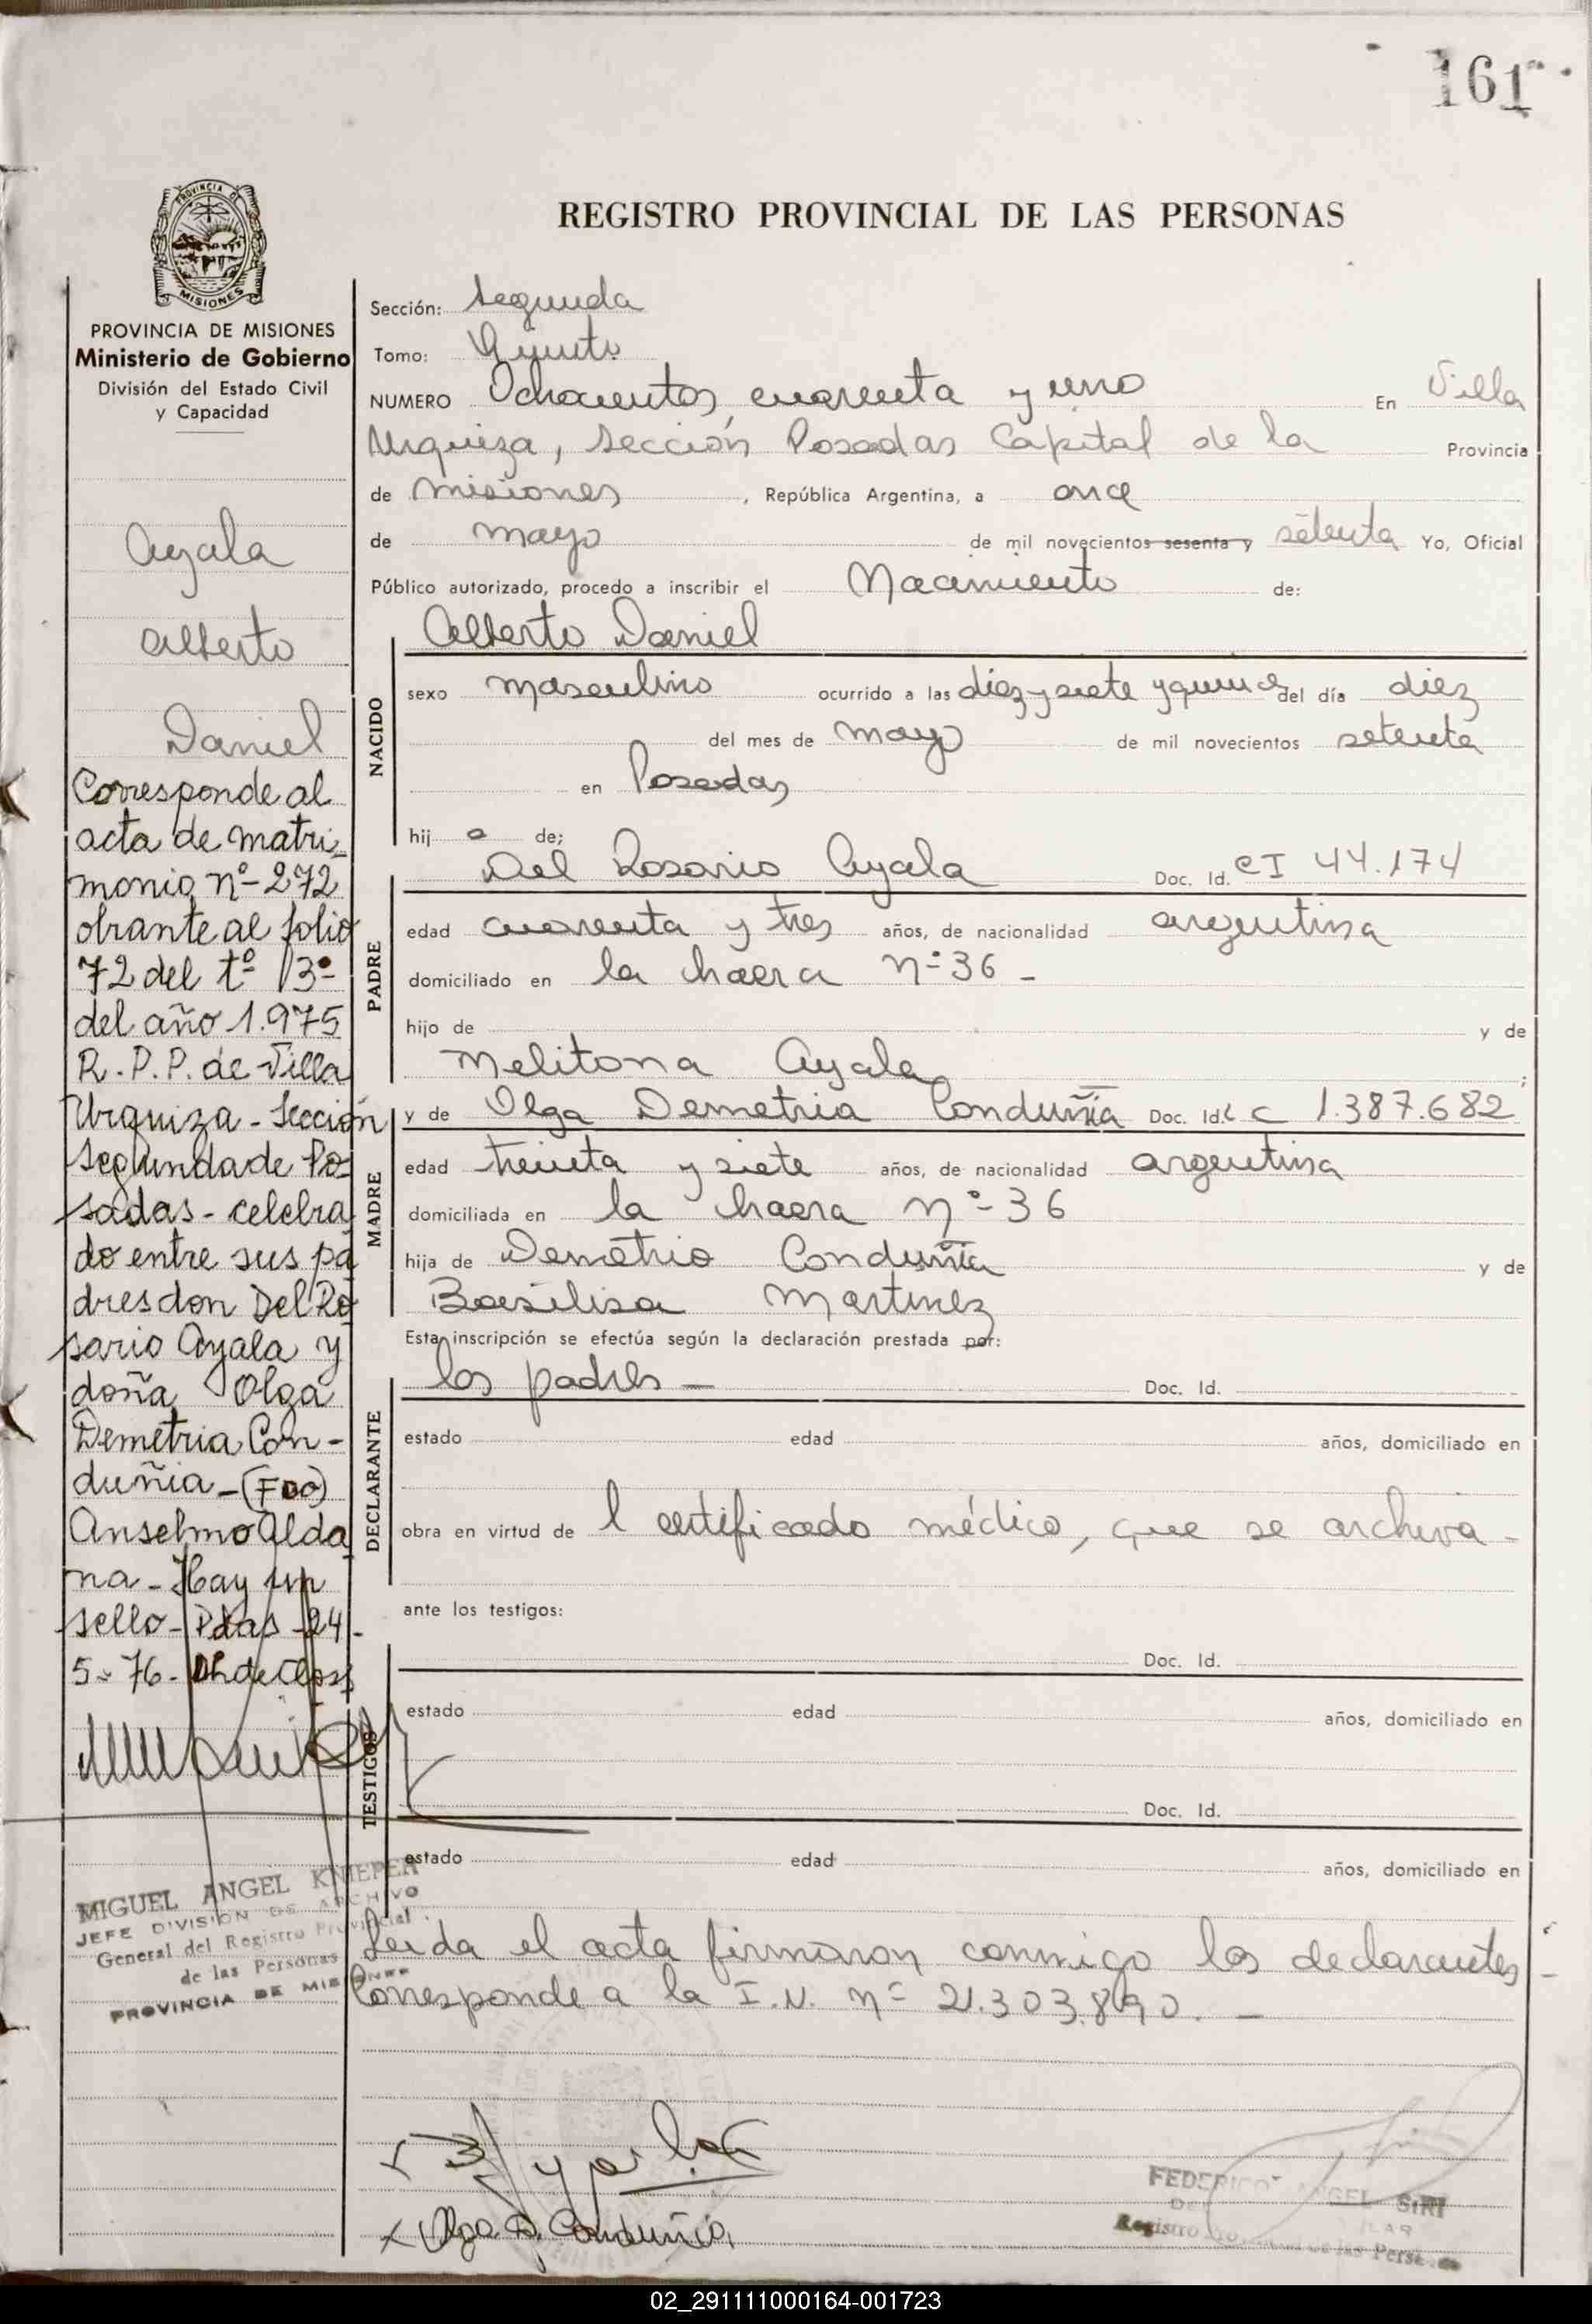 161
REGISTRO PROVINCIAL DE LAS PERSONAS
PROVINCIA DE MISIONES
Ministerio de Gobierno
División del Estado Civil
y Capacidad
Ayala
Alberto
Daniel
Corresponde al
acta de matri
monio nº 272
obrante al folio
72 del tº 3º
del año 1.975
R.P.P. de Villa
Urquiza - Sección
Segunda de Po
sadas - celebra
do entre sus pa
dres don Del Ro
sario Ayala y
doña Olga
Demetria Con-
duñia - (FDO)
Anselmo Alda
na - Hay un
sello - Pdas - 24 -
5 - 76 -
MIGUEL ANGEL KNIEPER
JEFE DIVISION DE ARCHIVO
General del Registro Provincial
de las Personas
PROVINCIA DE MISIONES
Sección: Segunda
Tomo: Quinto
NUMERO Ochocientos cuarenta y uno En Villa
Urquiza, Sección Posadas Capital de la Provincia
de Misiones, República Argentina, a once
de mayo de mil novecientos sesenta y setenta Yo, Oficial
Público autorizado, procedo a inscribir el Nacimiento de:
Alberto Daniel
NACIDO
sexo masculino ocurrido a las diez y siete y quince del día diez
del mes de mayo de mil novecientos setenta
en Posadas
hij o de;
Del Rosario Ayala Doc. Id. CI 44.174
PADRE
edad cuarenta y tres años, de nacionalidad argentina
domiciliado en la chacra nº 36 -
hijo de y de
Melitona Ayala ;
y de Olga Demetria Conduñia Doc. Id. L C 1.387.682
MADRE
edad treinta y siete años, de nacionalidad argentina
domiciliada en la chacra nº 36
hija de Demetrio Conduñia y de
Basilisa Martinez
Esta inscripción se efectúa según la declaración prestada por:
los padres - Doc. Id.
DECLARANTE
estado edad años, domiciliado en
obra en virtud de l certificado médico, que se archiva -
ante los testigos:
Doc. Id.
TESTIGOS
estado edad años, domiciliado en
Doc. Id.
estado edad años, domiciliado en
Leida el acta firmaron conmigo los declarantes -
Corresponde a la I.N. nº 21.303.890. -
Olga D. Conduñia
FEDERICO ANGEL SIRI
Registro de las Personas
02_291111000164-001723